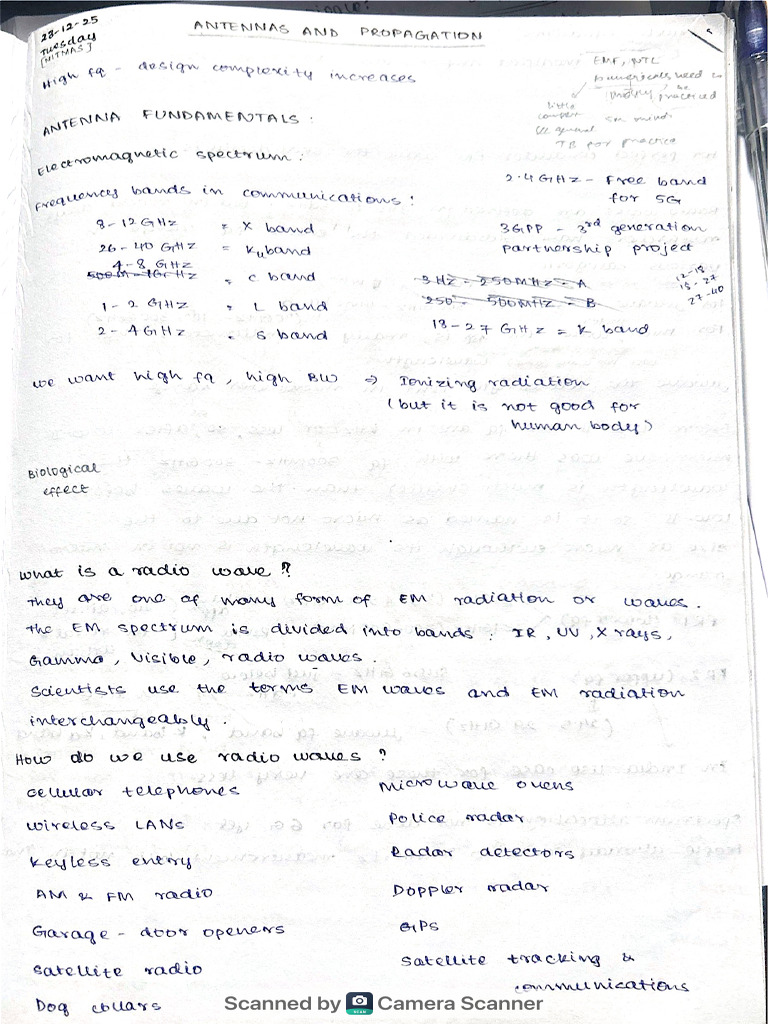 23-12-25
Tuesday
[NITMAS]
ANTENNAS AND PROPAGATION
High fq - design complexity increases
EMF, NTL
numericals need to
be practiced
TB for practice
ANTENNA FUNDAMENTALS :
Electromagnetic spectrum :
Frequency bands in communications :
8-12 GHz = X band
26-40 GHz = Ku band
4-8 GHz
500M-1GHz = C band
1-2 GHz = L band
2-4 GHz = S band
2.4 GHz - Free band
for 5G
3GPP - 3rd generation
partnership project
3Hz - 250MHz - A
250 - 500MHz - B
12-18
18-27
27-40
18-27 GHz = K band
we want high fq, high BW ⇒ Ionizing radiation
(but it is not good for
human body)
Biological
effect
What is a radio wave ?
They are one of many form of EM radiation or waves.
The EM spectrum is divided into bands : IR, UV, X rays,
Gamma, Visible, radio waves.
Scientists use the terms EM waves and EM radiation
interchangeably.
How do we use radio waves ?
Cellular telephones
Wireless LANs
Keyless entry
AM & FM radio
Garage - door openers
Satellite radio
Dog collars
Microwave ovens
Police radar
Radar detectors
Doppler radar
GPS
Satellite tracking &
communications
Scanned by Camera Scanner